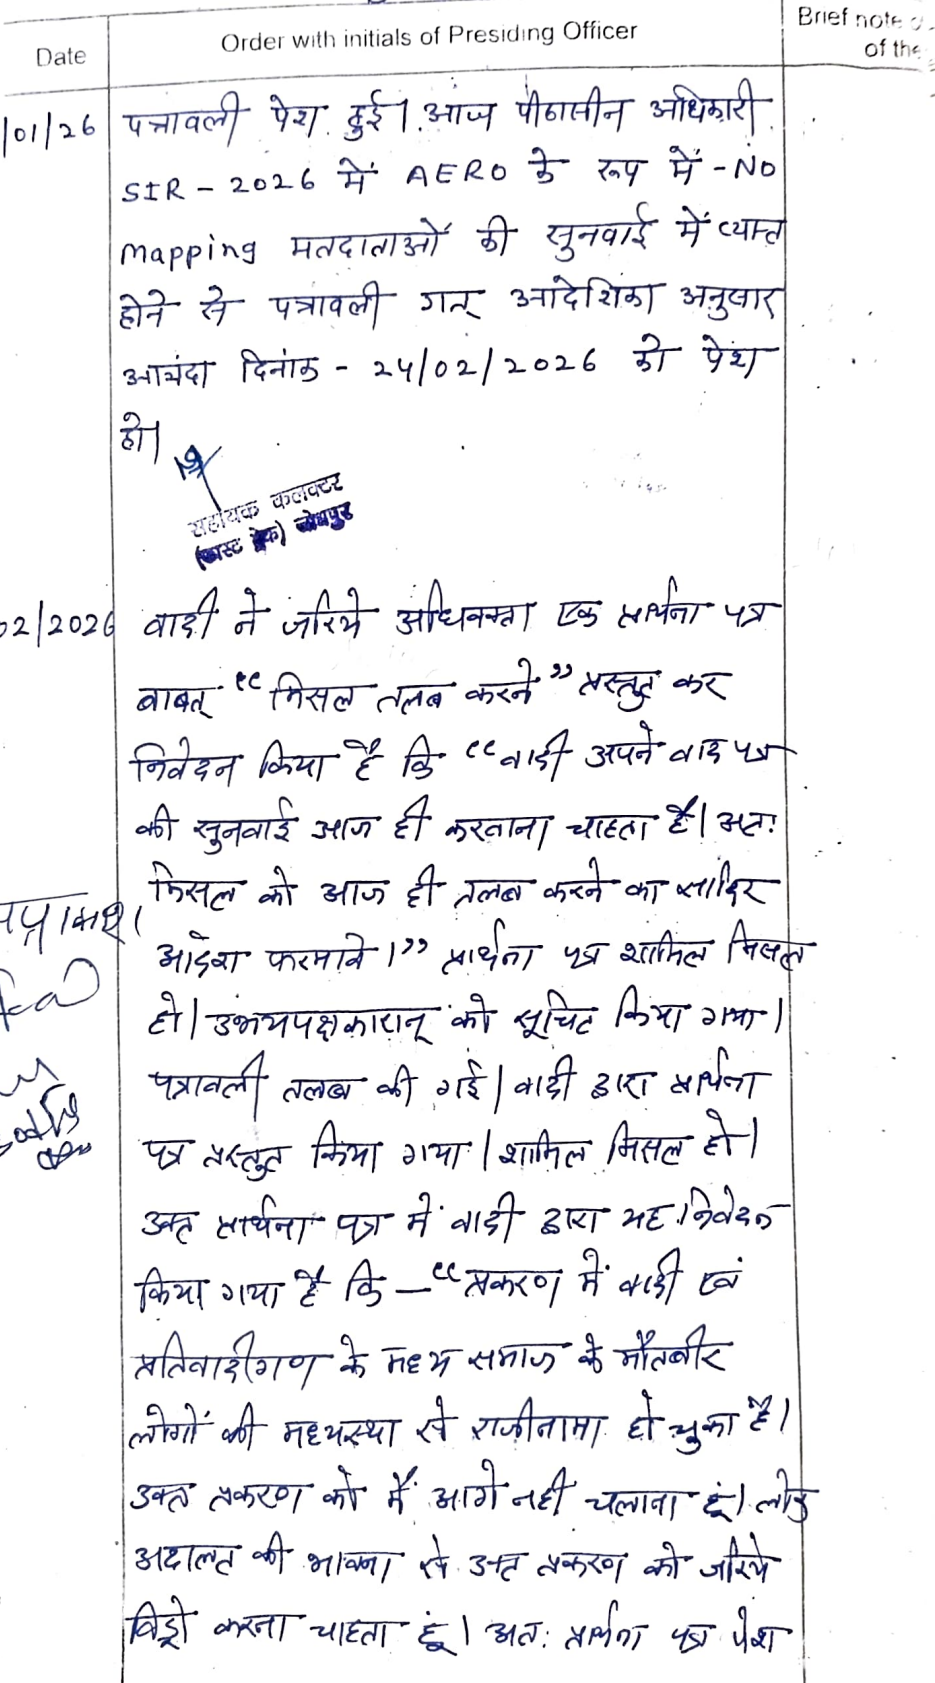 Date
Order with initials of Presiding Officer
Brief note
of the
/01/26 पत्रावली पेश हुई। आज पीठासीन अधिकारी
SIR - 2026 में AERO के रूप में - NO
mapping मतदाताओं की सुनवाई में व्यस्त
होने से पत्रावली गत् आदेशिका अनुसार
आयंदा दिनांक - 24/02/2026 को पेश
हो।
सहायक कलक्टर
(फास्ट ट्रेक) जोधपुर
02/2026 वादी ने जरिये अधिवक्ता एक प्रार्थना पत्र
बाबत् “मिसल तलब करने” प्रस्तुत कर
निवेदन किया है कि “वादी अपने वाद पत्र
की सुनवाई आज ही करवाना चाहता है। अतः
मिसल को आज ही तलब करने का सादिर
आदेश फरमावे।” प्रार्थना पत्र शामिल मिसल
हो। उभयपक्षकारान् को सूचित किया गया।
पत्रावली तलब की गई। वादी द्वारा प्रार्थना
पत्र प्रस्तुत किया गया। शामिल मिसल हो।
उक्त प्रार्थना पत्र में वादी द्वारा यह निवेदन
किया गया है कि – “प्रकरण में वादी एवं
प्रतिवादीगण के मध्य समाज के मौतबीर
लोगों की मध्यस्था से राजीनामा हो चुका है।
उक्त प्रकरण को मैं आगे नही चलाना हूं। लोक
अदालत की भावना से उक्त प्रकरण को जरिये
विड्रो करना चाहता हूं। अतः प्रार्थना पत्र पेश